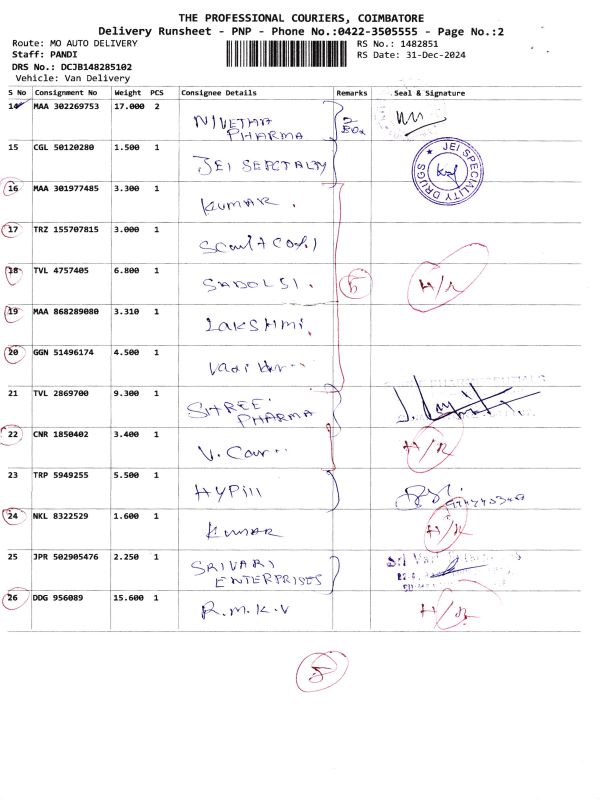 THE PROFESSIONAL COURIERS, COIMBATORE
Delivery Runsheet - PNP - Phone No.:0422-3505555 - Page No.:2
Route: MO AUTO DELIVERY RS No.: 1482851
Staff: PANDI RS Date: 31-Dec-2024
DRS No.: DCJB148285102
Vehicle: Van Delivery
S No Consignment No Weight PCS Consignee Details Remarks Seal & Signature
14 MAA 302269753 17.000 2 NIVETHA PHARMA 2 Box
15 CGL 50120280 1.500 1 JEI SEPCTALTY JEI SPECIALITY DRUGS
16 MAA 301977485 3.300 1 KUMAR.
17 TRZ 155707815 3.000 1
18 TVL 4757405 6.800 1 SADOLSI. 5 H/R
19 MAA 868289080 3.310 1 LAKSHMI.
20 GGN 51496174 4.500 1
21 TVL 2869700 9.300 1 SHREE PHARMA
22 CNR 1850402 3.400 1 V. Car H/R
23 TRP 5949255 5.500 1 HYPill
24 NKL 8322529 1.600 1 KUMAR H/R
25 JPR 502905476 2.250 1 SRIVARI ENTERPRISES
26 DDG 956089 15.600 1 R.M.K.V H/R
8